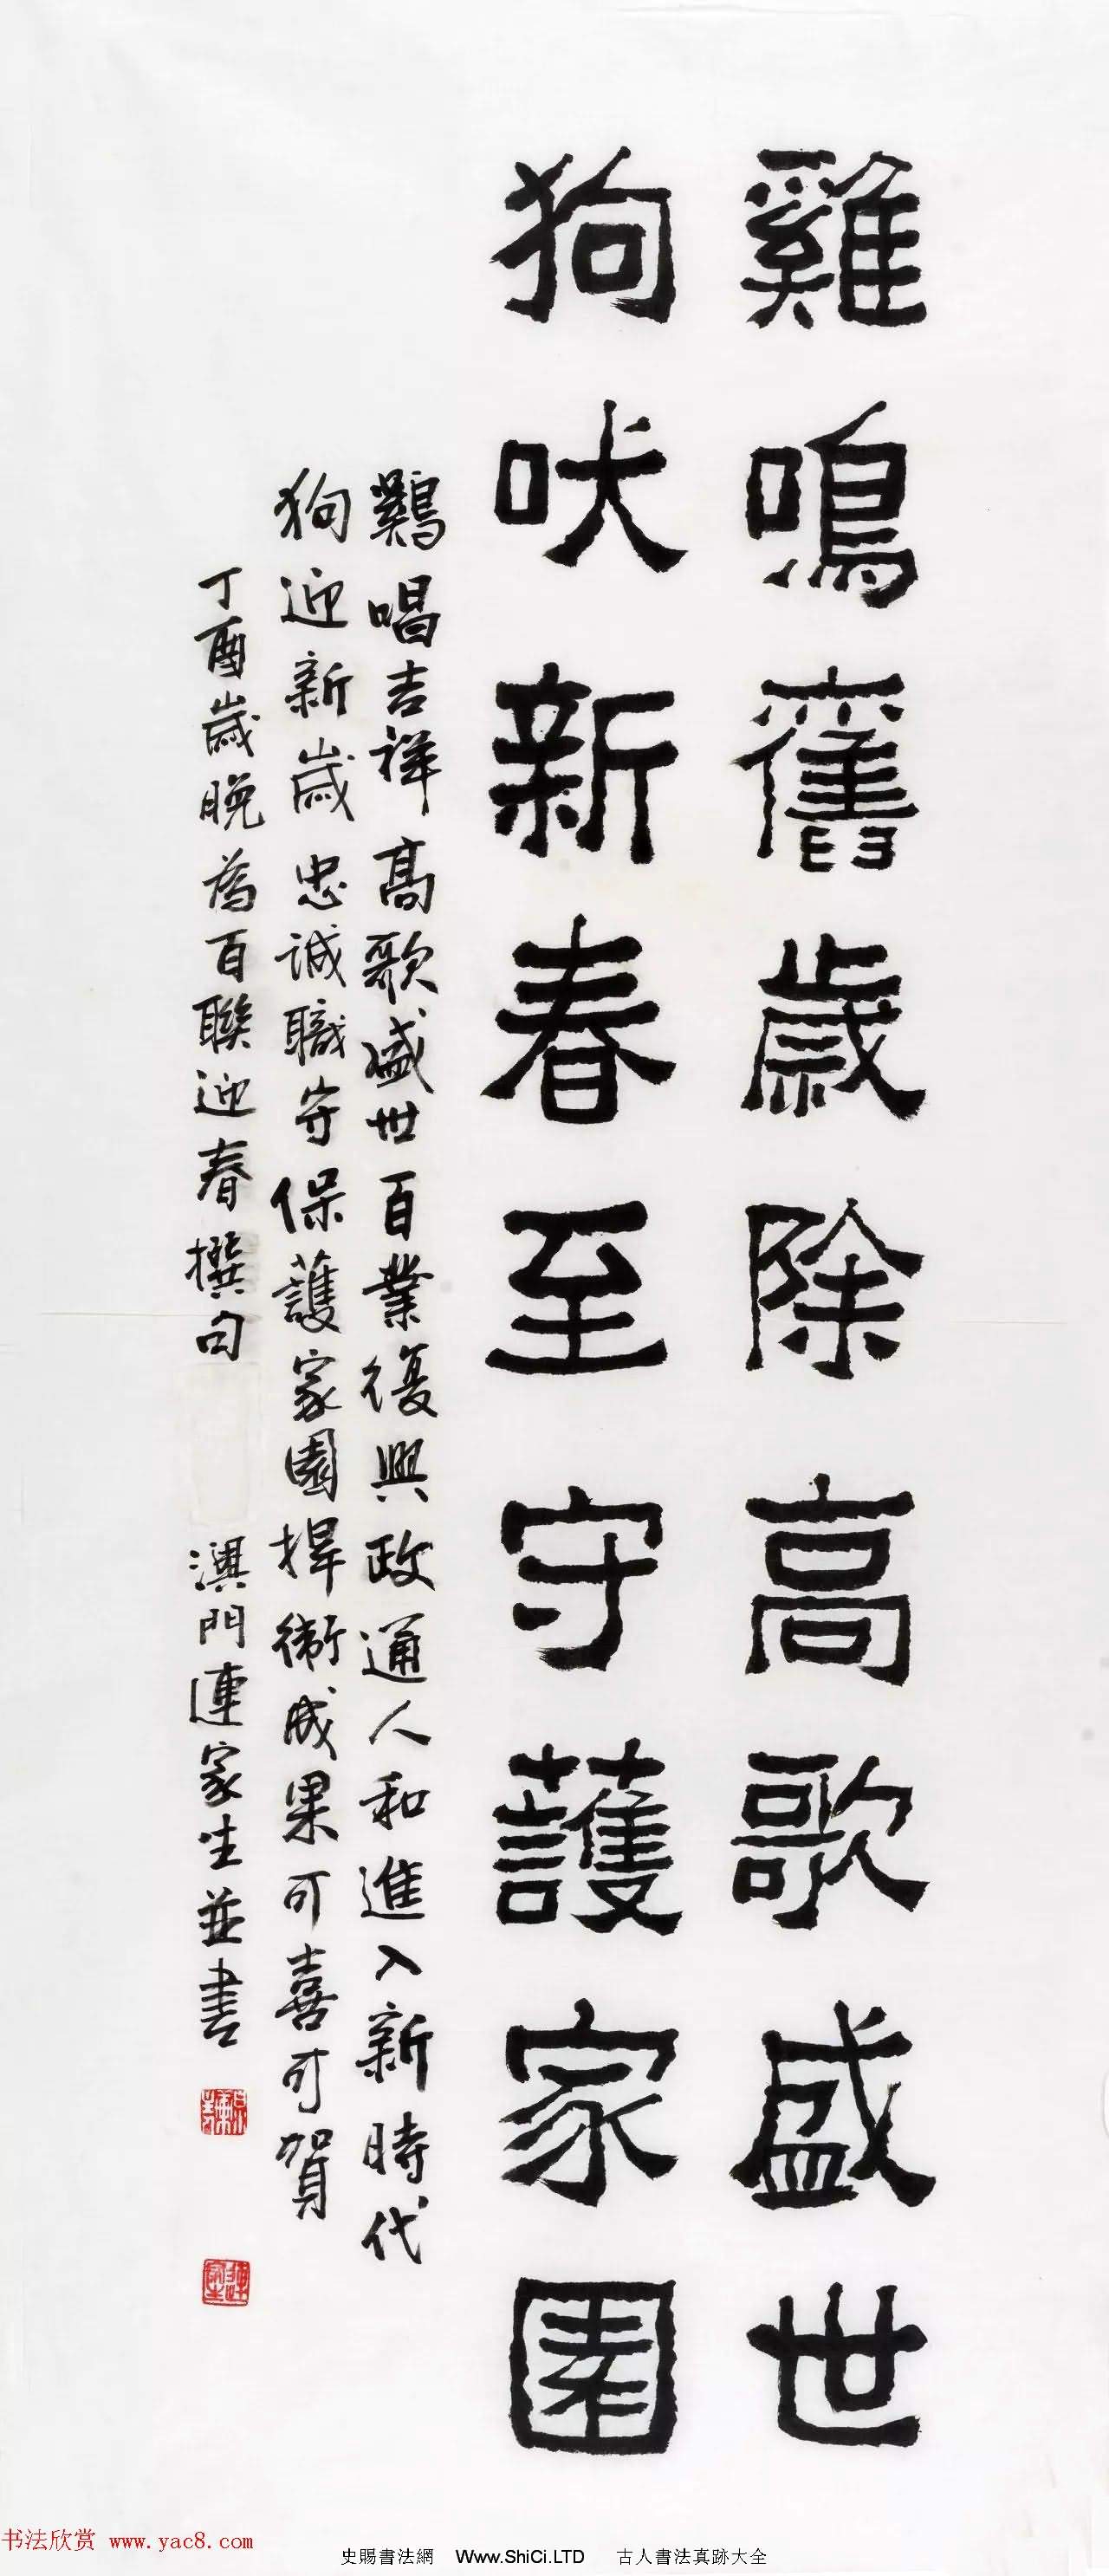 雞鳴舊歲除高歌盛世
狗吠新春至守護家園
鷄唱吉祥高歌盛世百業復興政通人和進入新時代
狗迎新歲忠誠職守保護家園捍衛成果可喜可賀
丁酉歲晚為百聯迎春撰句 澳門連家生並書
連家生
书法欣赏 www.yac8.com
史賜書法網 Www.ShiCi.LTD 古人書法真跡大全